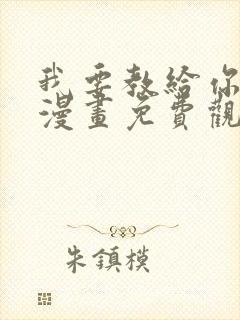 我要教給你
漫畫免費觀
朱鎮模